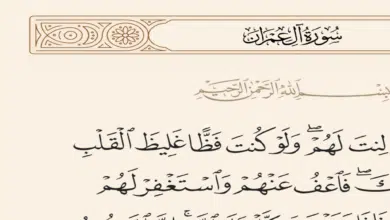 سُورَةُ آلِ عِمْرَانَ
ـسْمِ اللَّهِ الرَّحْمَٰنِ الرَّحِيمِ
لِنتَ لَهُمْ ۖ وَلَوْ كُنتَ فَظًّا غَلِيظَ الْقَلْبِ
ـكَ ۖ فَاعْفُ عَنْهُمْ وَاسْتَغْفِرْ لَهُمْ